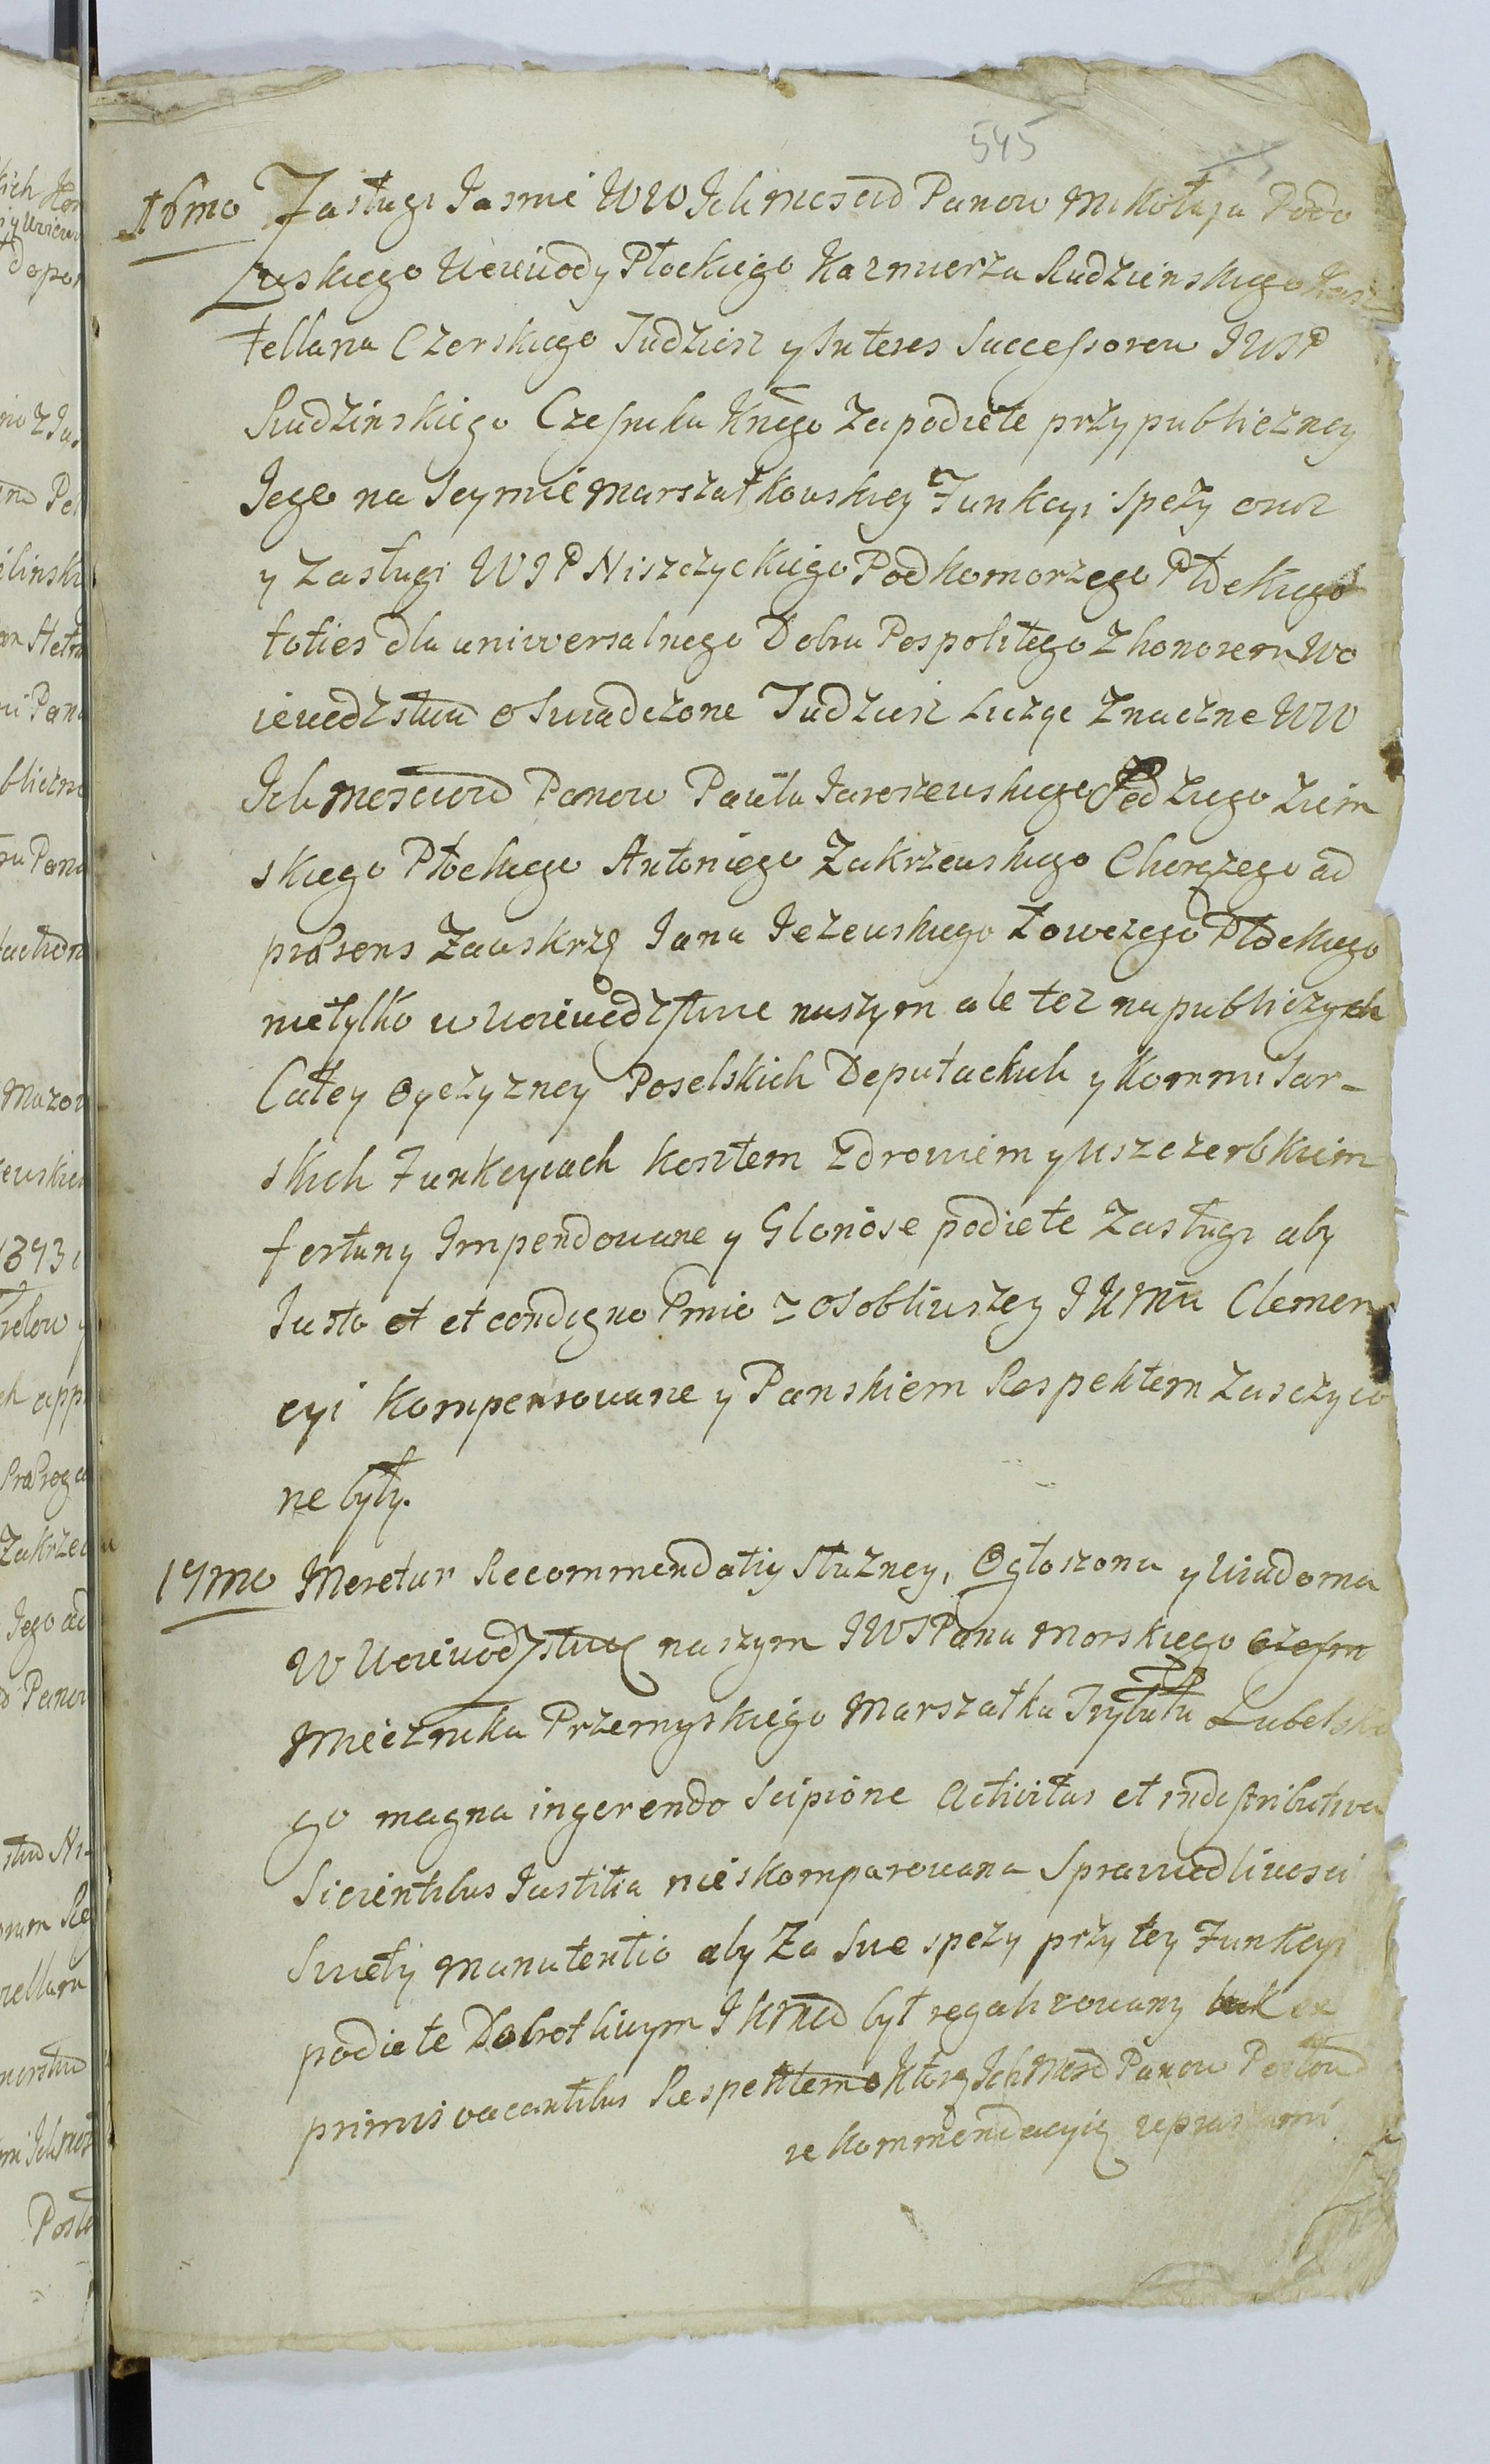 545
16mo Zasługi Jasnie WW Ich mosciow Panow Mikołaja Podo
ruskiego Woiewody Płockiego Kazmierza Rudzinskiego Kasz
tellana Czerskiego Tudziesz y Interes Successorow JWJP
Rudzinskiego Czesnika Knego Za podięte przy publiczney
Jego na Seymie Marszałkowskiey Funkcyi Spezy oraz
y Zasługi WJP Niszczyckiego Podkomorzego Płockiego
toties dla uniwersalnego Dobra Pospolitego z honorem Wo
iewodztwa oswiadczone Tudziesz Licząc Znaczne WW
Ich Mosciow Panow Pawła Jaroszewskiego Sędziego Ziem
skiego Płockiego Antoniego Zakrzewskiego Chorążego ad
præsens Zawskrzę Jana Jeżewskiego Łowczego Płockiego
nietylko w Woiewodztwie naszym ale też na publiczych
Całey Oyczyzney Poselskich Deputackich y Kommisar-
skich Funkcyiach kosztem zdrowiem y Uszczerbkiem
fortuny Impendowane y Gloriose podięte Zasługi aby
Justo et et condigno Pmio z osobliwszey JKMci Clemen
cyi kompensowane y Panskiem Respektem Zasczyco
ne były.
17mo Meretur Recommendatiy Słuzney, Ogłoszona y Wiadoma
W Woiewodztwie naszym JWJPana Morskiego czesn
Miecznika Przemyskiego Marszałka Trybłu Lubelskie
go magna ingerendo Scipione Activitas et in distributiva
Sicientibus Justitia nieskomparowana Sprawiedliwosci
Swięty manutentio aby Za Swe spezy przy tey Funkcyi
podięte Dobrotliwym JKMci był regalizowany
primis vacantibus Respektem o Którą Ich Mosc Panow Posłow
rekommendacyią upraszamy